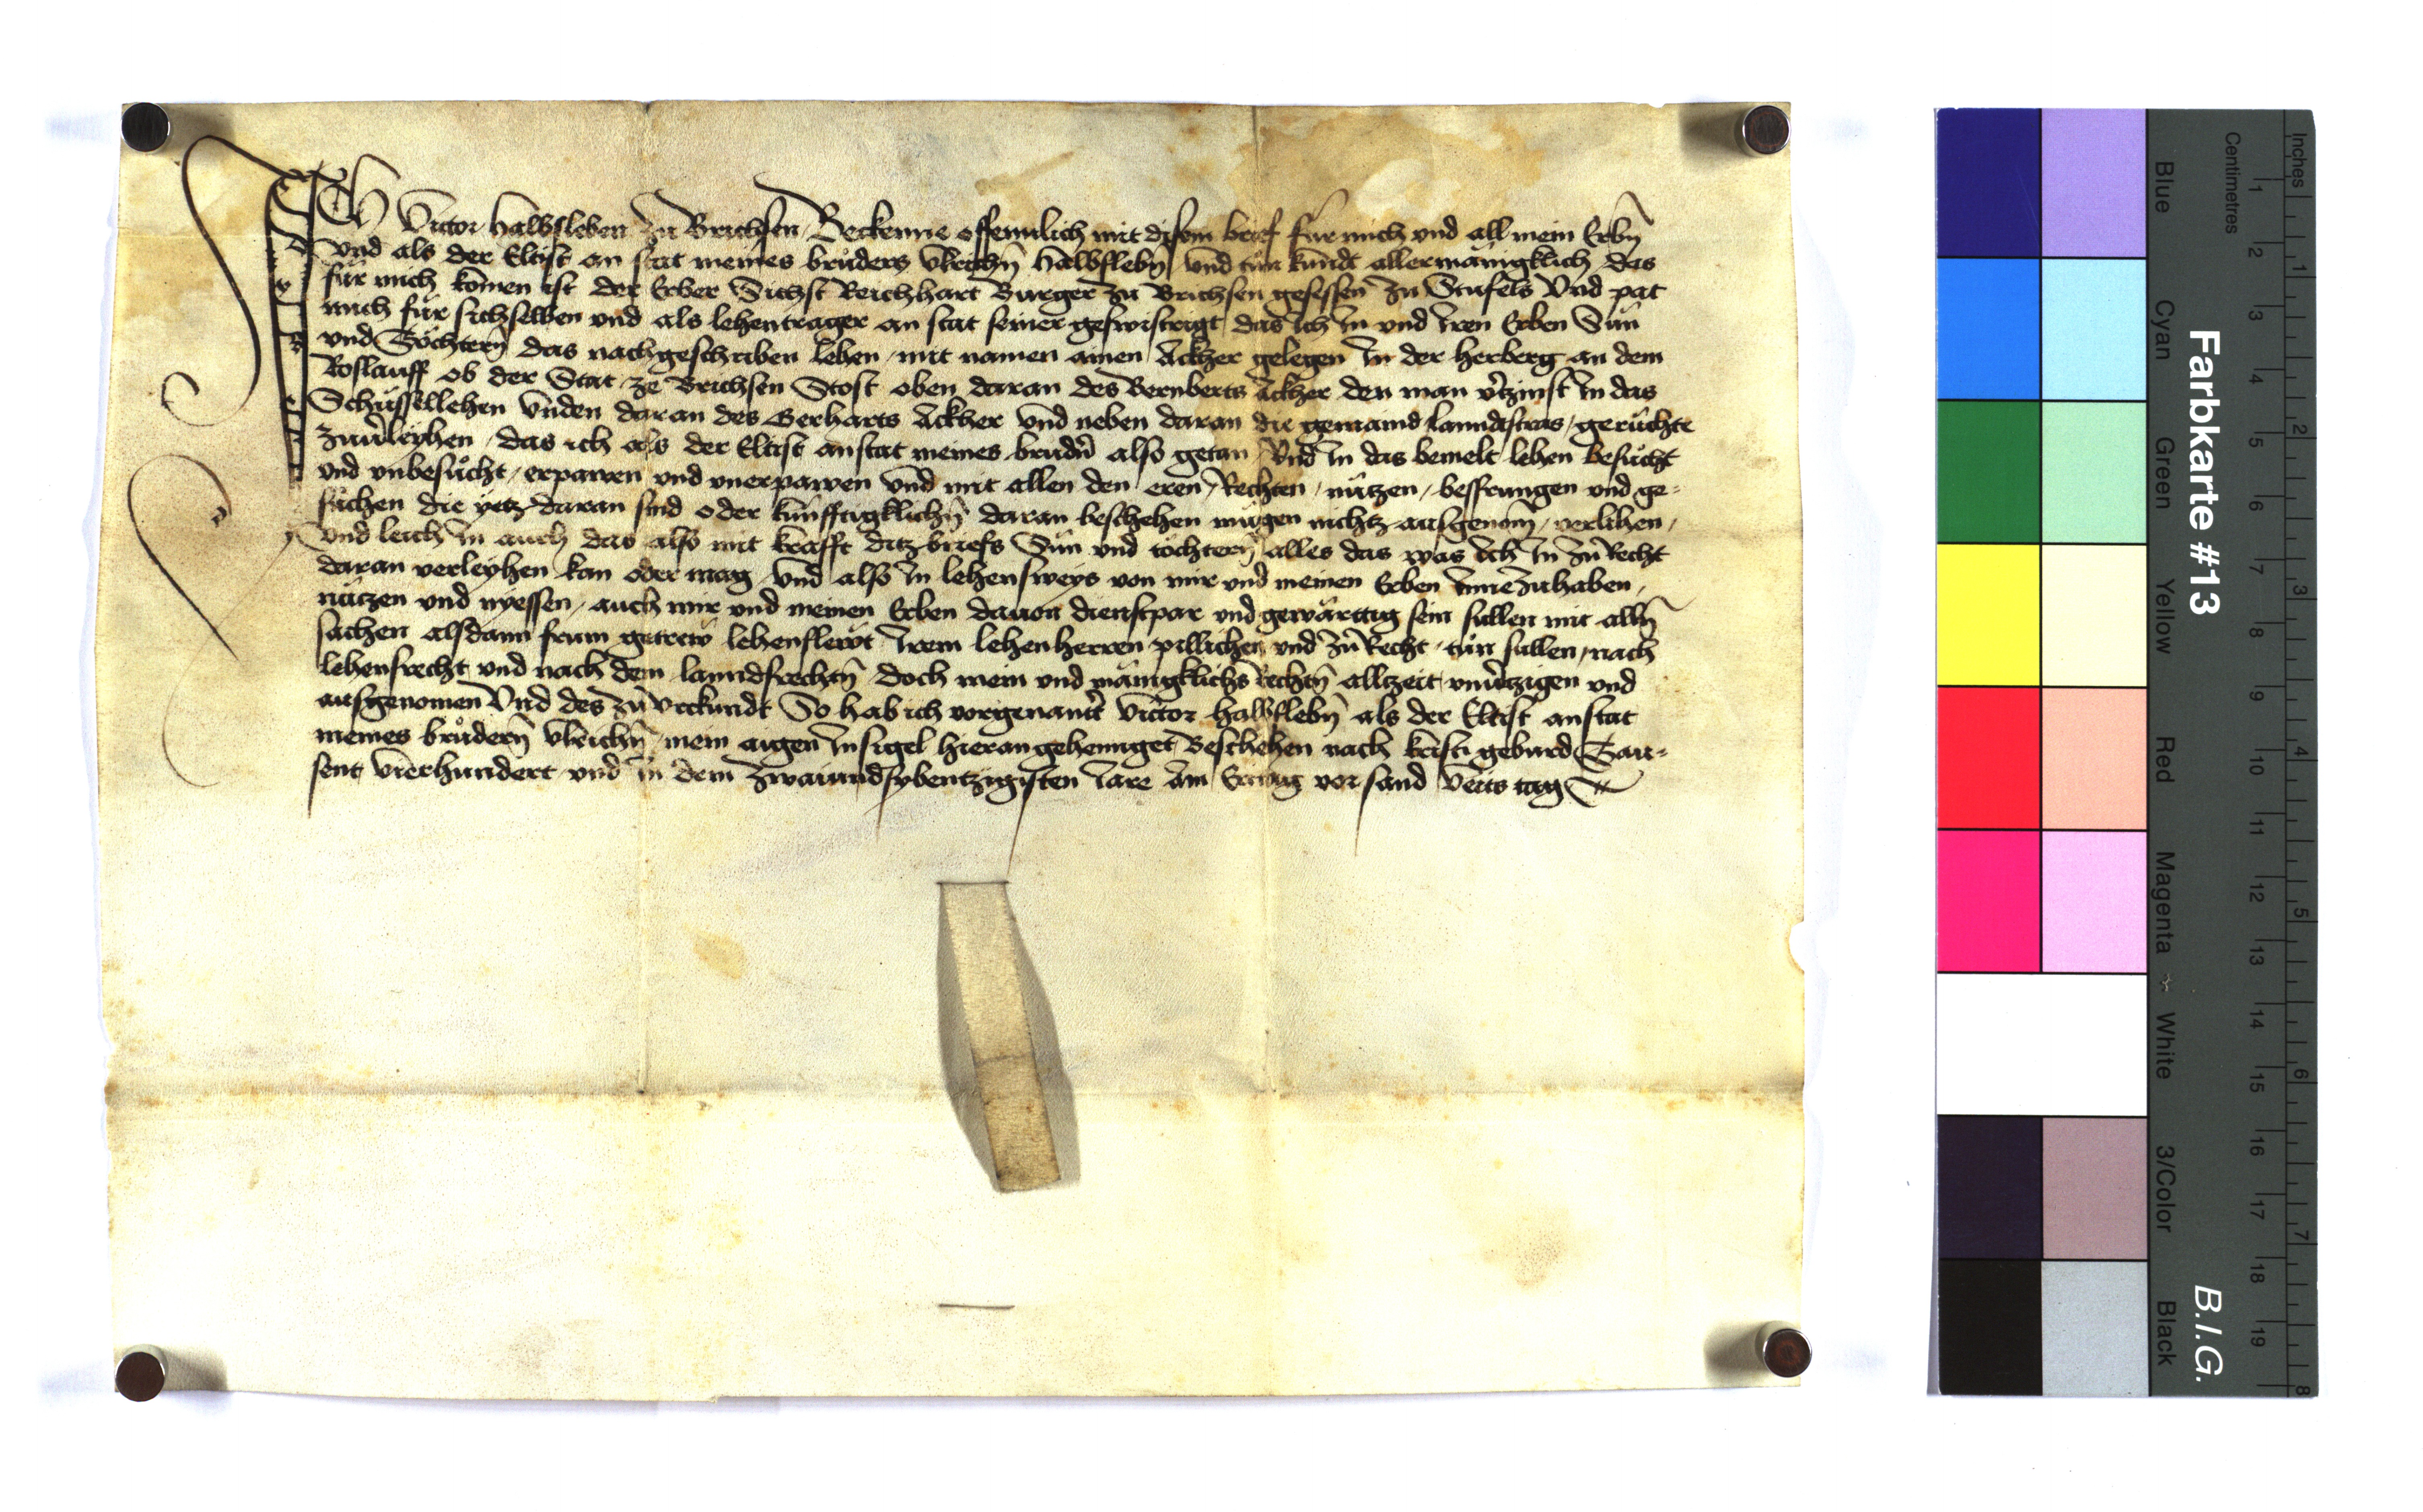 Ich Victor halbsleben zu Brichsen Bekenne offennlich mit disem brief für mich und all mein Erbn̄
und als der Eltist an stat meines bruders Vlrichn̄ halbslebn̄ und tůn kundt allermänigklich das
für mich komen ist der Erber Sichst Reichhart Burger zu Brichsen gesessen zu Stufels Vnd pat
mich für sichselben und als lehentrager an stat seiner geswistrigt das Ich In und Iren Erben Sün
und Töchtern̄ das nachgeschriben lehen mit namen ainen Ackher gelegen In der herberg an dem
Roslauff ob der Stat ze Brichsen Stost oben daran des Bernberts Ackher den man v̄tzinst In das
Schüssellehen Vnden daran des Gerharts Ackher Vnd neben daran die gemaind lanndstras gerůchte
zuuerleyhen das ich als der Eltist anstat meines brudern̄ also getan Vnd In das bemelt lehen besůcht
und vnbesůcht erpawen und vnerpawen Vnd mit allen den eren Rechten nützen bessrungen und ge-
sůchen die yetz daran sind oder künfftigklichn̄ daran beschehen mügen nichtz ausgenom̄ verlihen
Vnd leich In auch das also mit krafft ditz briefs Sün und töchtern̄ alles das was Ich In zů Recht
daran verleyhen kan oder mag Vnd also In lehensweys von mir und meinen Erben Innezuhaben
nützen und nyessen auch mir und meinen Erben dauon dienstpar und gewärttig sein sullen mit alln̄
sachen alsdann frum getrew lehenslewt Irem lehenherren pillichen und zů Recht tůn sullen nach
lehensrecht und nach dem lanndsrechtn̄ doch mein und mänigklichs Rechtn̄ alltzeit vnuertzigen und
ausgenomen Vnd des zů Vrkundt So hab ich vorgenantt̄ Victor halbslebn̄ als der Eltist anstat
meines brůdern̄ Vlrichn̄ mein aigen Insigel hieran gehennget Beschehen nach kristi geburd Tau-
sent Vierhundert und In dem zwaiundsybentzigisten Iare Am Eritag vor sand Veits tag
Farbkarte #13
B.I.G.
Inches
Centimetres
Blue
Cyan
Green
Yellow
Red
Magenta
White
3/Color
Black
1 2 3 4 5 6 7 8 9 10 11 12 13 14 15 16 17 18 19
1 2 3 4 5 6 7 8